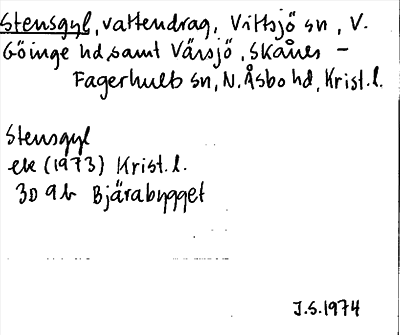 Stensgyl, vattendrag, Vittsjö sn, V.
Göinge hd samt Värsjö, Skånes -
Fagerhults sn, N. Åsbo hd, Krist. l.
Stensgyl
ek (1973) Krist. l.
3D 9b Bjärabygget
J.S. 1974